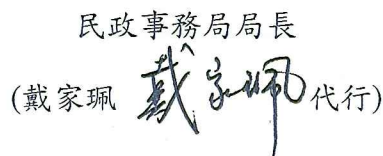 民政事務局局長
(戴家珮 戴家珮 代行)